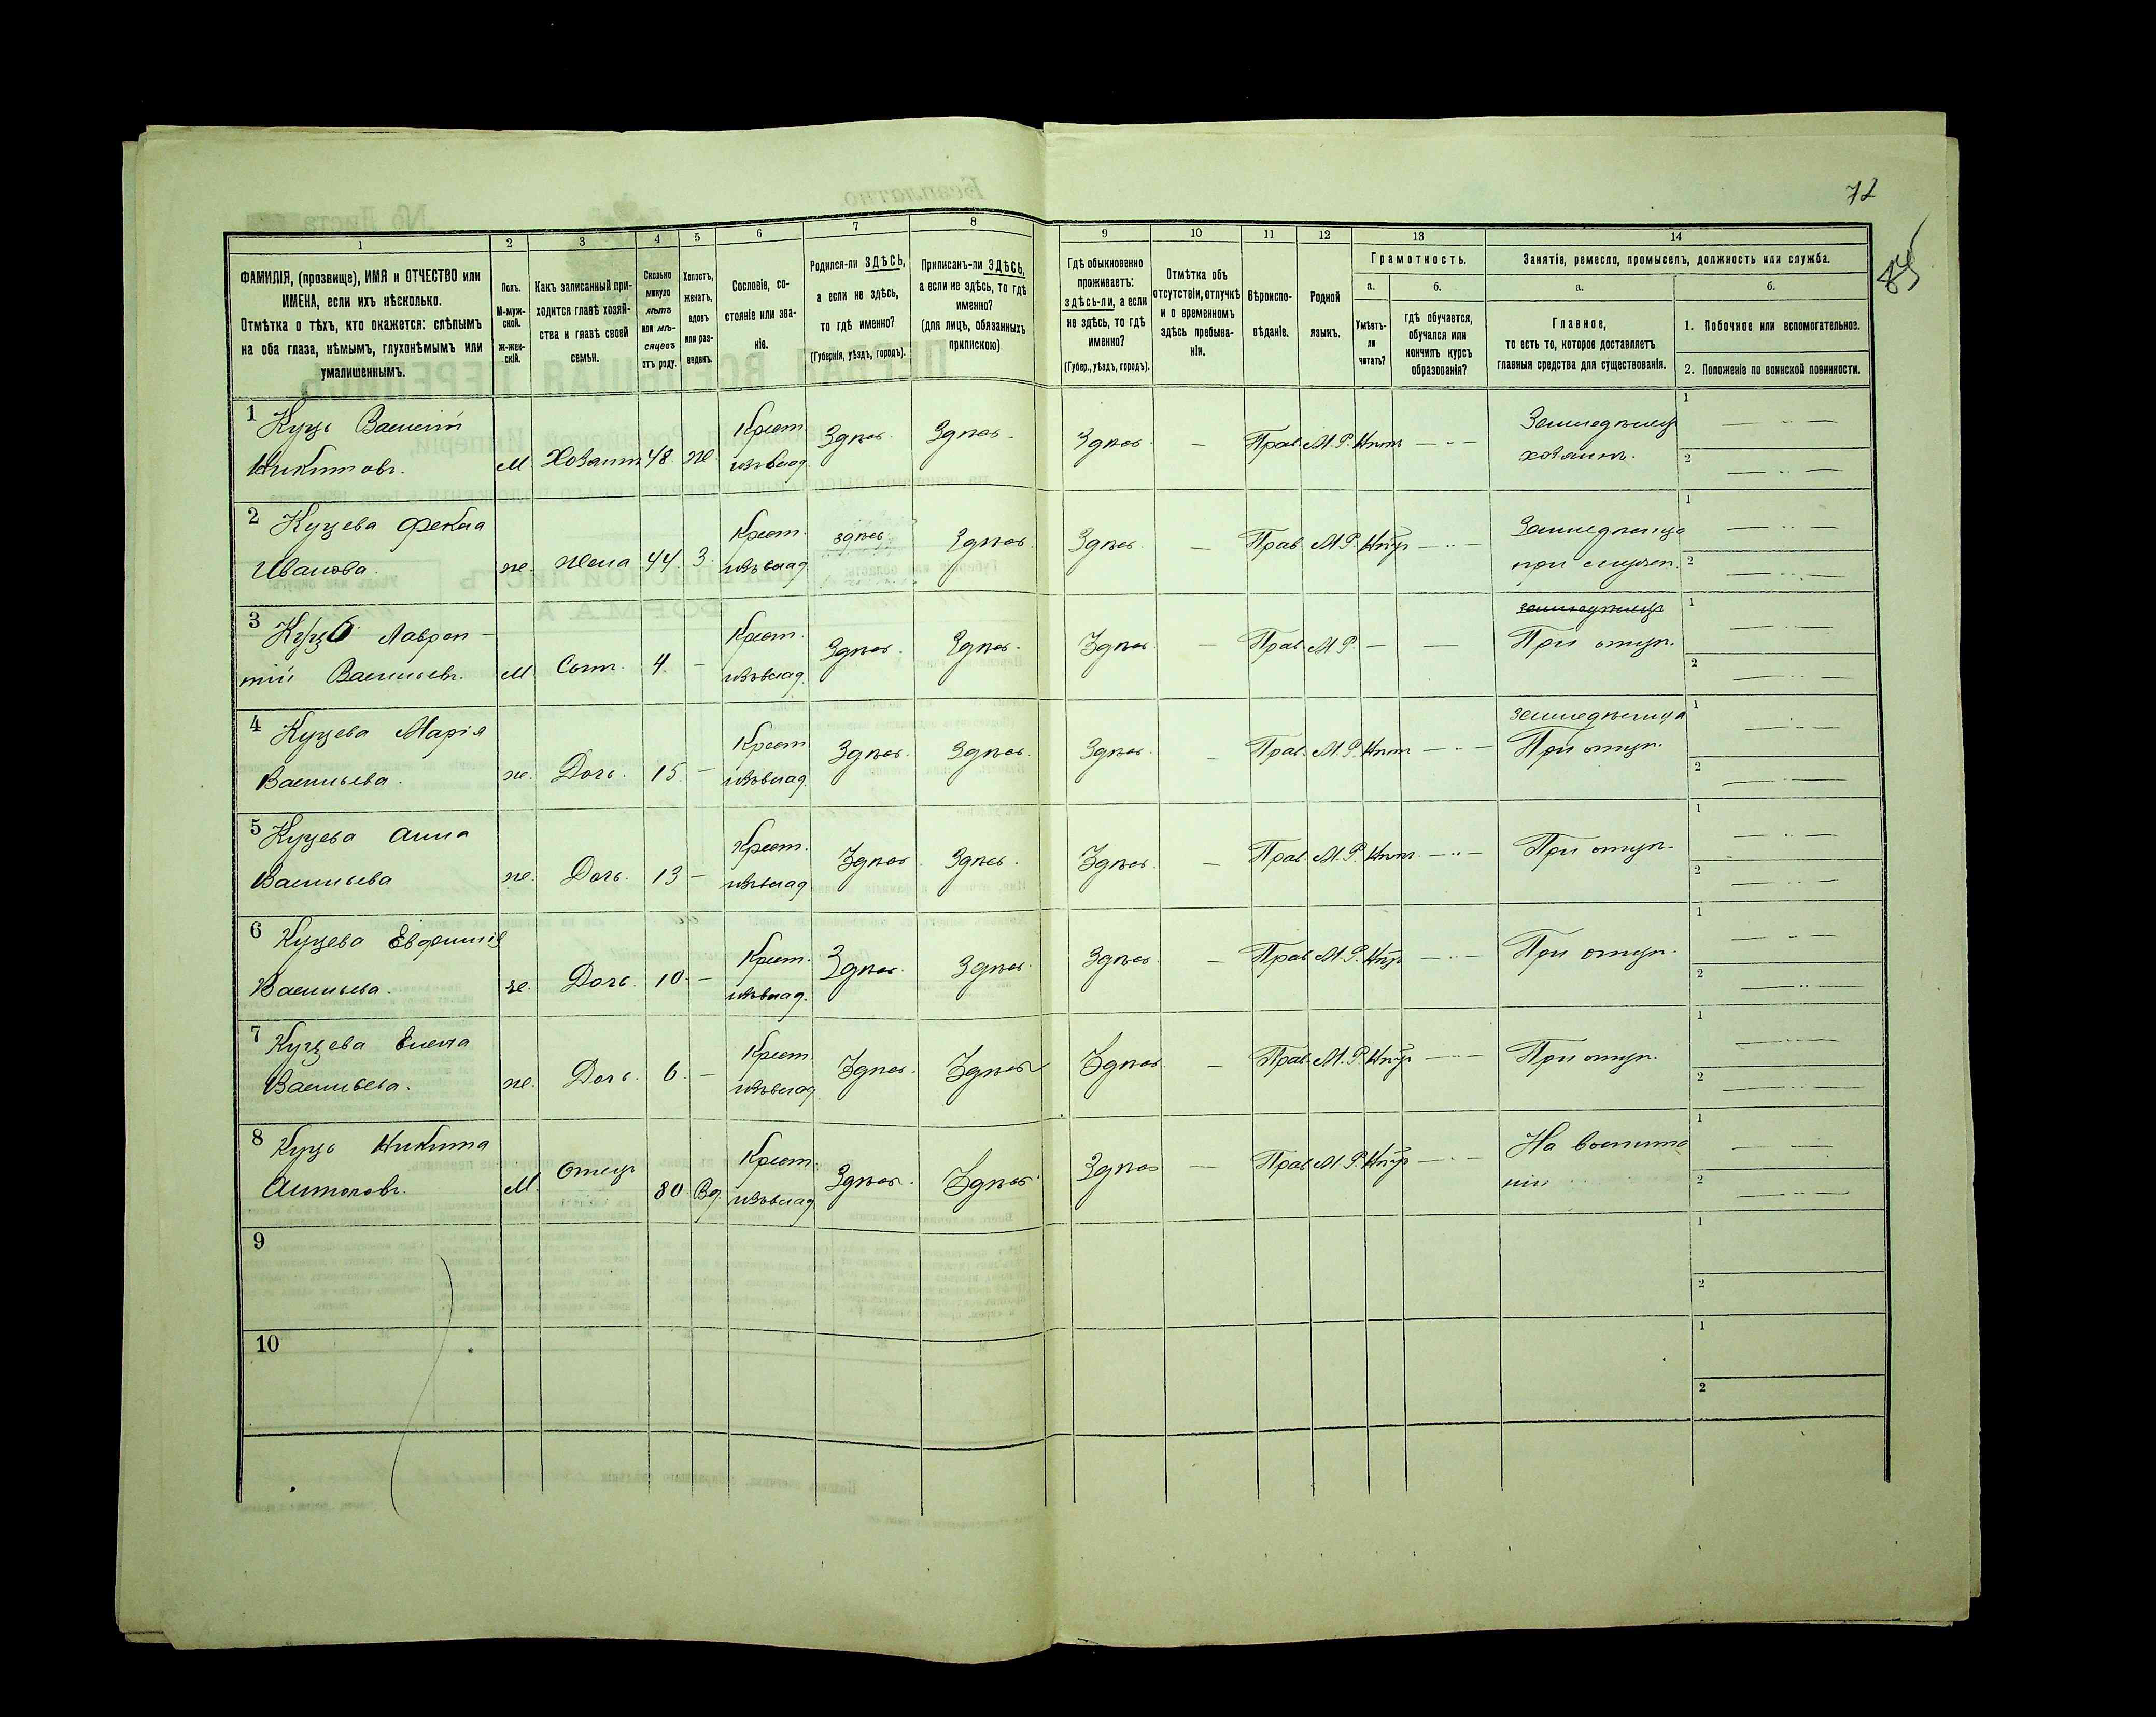 72
85
1 2 3 4 5 6 7 8 9 10 11 12 13 14
ФАМИЛІЯ, (прозвище), ИМЯ и ОТЧЕСТВО или
ИМЕНА, если ихъ нѣсколько.
Отмѣтка о тѣхъ, кто окажется: слѣпымъ
на оба глаза, нѣмымъ, глухонѣмымъ или
умалишеннымъ.
Полъ.
М-муж-
ской.
Ж-жен-
скій.
Какъ записанный при-
ходится главѣ хозяй-
ства и главѣ своей
семьи.
Сколько
минуло
лѣтъ
или мѣ-
сяцевъ
отъ роду.
Холостъ,
женатъ,
вдовъ
или раз-
веденъ.
Сословіе, со-
стояніе или зва-
ніе.
Родился-ли ЗДѢСЬ,
а если не здѣсь,
то гдѣ именно?
(Губернія, уѣздъ, городъ).
Приписанъ-ли ЗДѢСЬ,
а если не здѣсь, то гдѣ
именно?
(для лицъ, обязанныхъ
припискою)
Гдѣ обыкновенно
проживаетъ:
здѣсь-ли, а если
не здѣсь, то гдѣ
именно?
(Губер., уѣздъ, городъ).
Отмѣтка объ
отсутствіи, отлучкѣ
и о временномъ
здѣсь пребыва-
ніи.
Вѣроиспо-
вѣданіе.
Родной
языкъ.
Грамотность.
а.
Умѣетъ-
ли
читать?
б.
гдѣ обучается,
обучался или
кончилъ курсъ
образованія?
Занятіе, ремесло, промыселъ, должность или служба.
а.
Главное,
то есть то, которое доставляетъ
главныя средства для существованія.
б.
1. Побочное или вспомогательное.
2. Положеніе по воинской повинности.
1 Куць Василій
Никитовъ. М Хозяинъ 48. Ж. Крест. изъ влад. Здѣсь. Здѣсь. Здѣсь. — Прав. М.Р. Нѣтъ — Земледѣлец
хозяинъ.
2 Куцева Фекла
Иванова. Ж. Жена 44. З. Крест. изъ влад. здѣсь Здѣсь. Здѣсь. — Прав. М.Р. Нѣтъ — Земледѣлица
при
3 Куць Лаврен-
тій Васильевъ. М. Сынъ. 4. — Крест. изъ влад. Здѣсь. Здѣсь. Здѣсь. — Прав. М.Р. — — При отцѣ.
4 Куцева Марія
Васильева. Ж. Дочь. 15. — Крест. изъ влад. Здѣсь. Здѣсь. Здѣсь. — Прав. М.Р. Нѣтъ — земледѣлица
При отцѣ.
5 Куцева Анна
Васильева Ж. Дочь. 13 — Крест. изъ влад. Здѣсь. Здѣсь. Здѣсь. — Прав. М.Р. Нѣтъ. — При отцѣ.
6 Куцева Евфимія
Васильева. Ж. Дочь. 10. — Крест. изъ влад. Здѣсь. Здѣсь. Здѣсь. — Прав. М.Р. Нѣтъ — При отцѣ.
7 Куцева Елена
Васильева. Ж. Дочь. 6. — Крест. изъ влад. Здѣсь. Здѣсь Здѣсь. — Прав. М.Р. Нѣтъ — При отцѣ.
8 Куць Никита
Антоновъ. М. Отецъ 80. Вд. Крест. изъ влад. Здѣсь. Здѣсь. Здѣсь — Прав. М.Р. Нѣтъ — На воспита
ніи
9
10